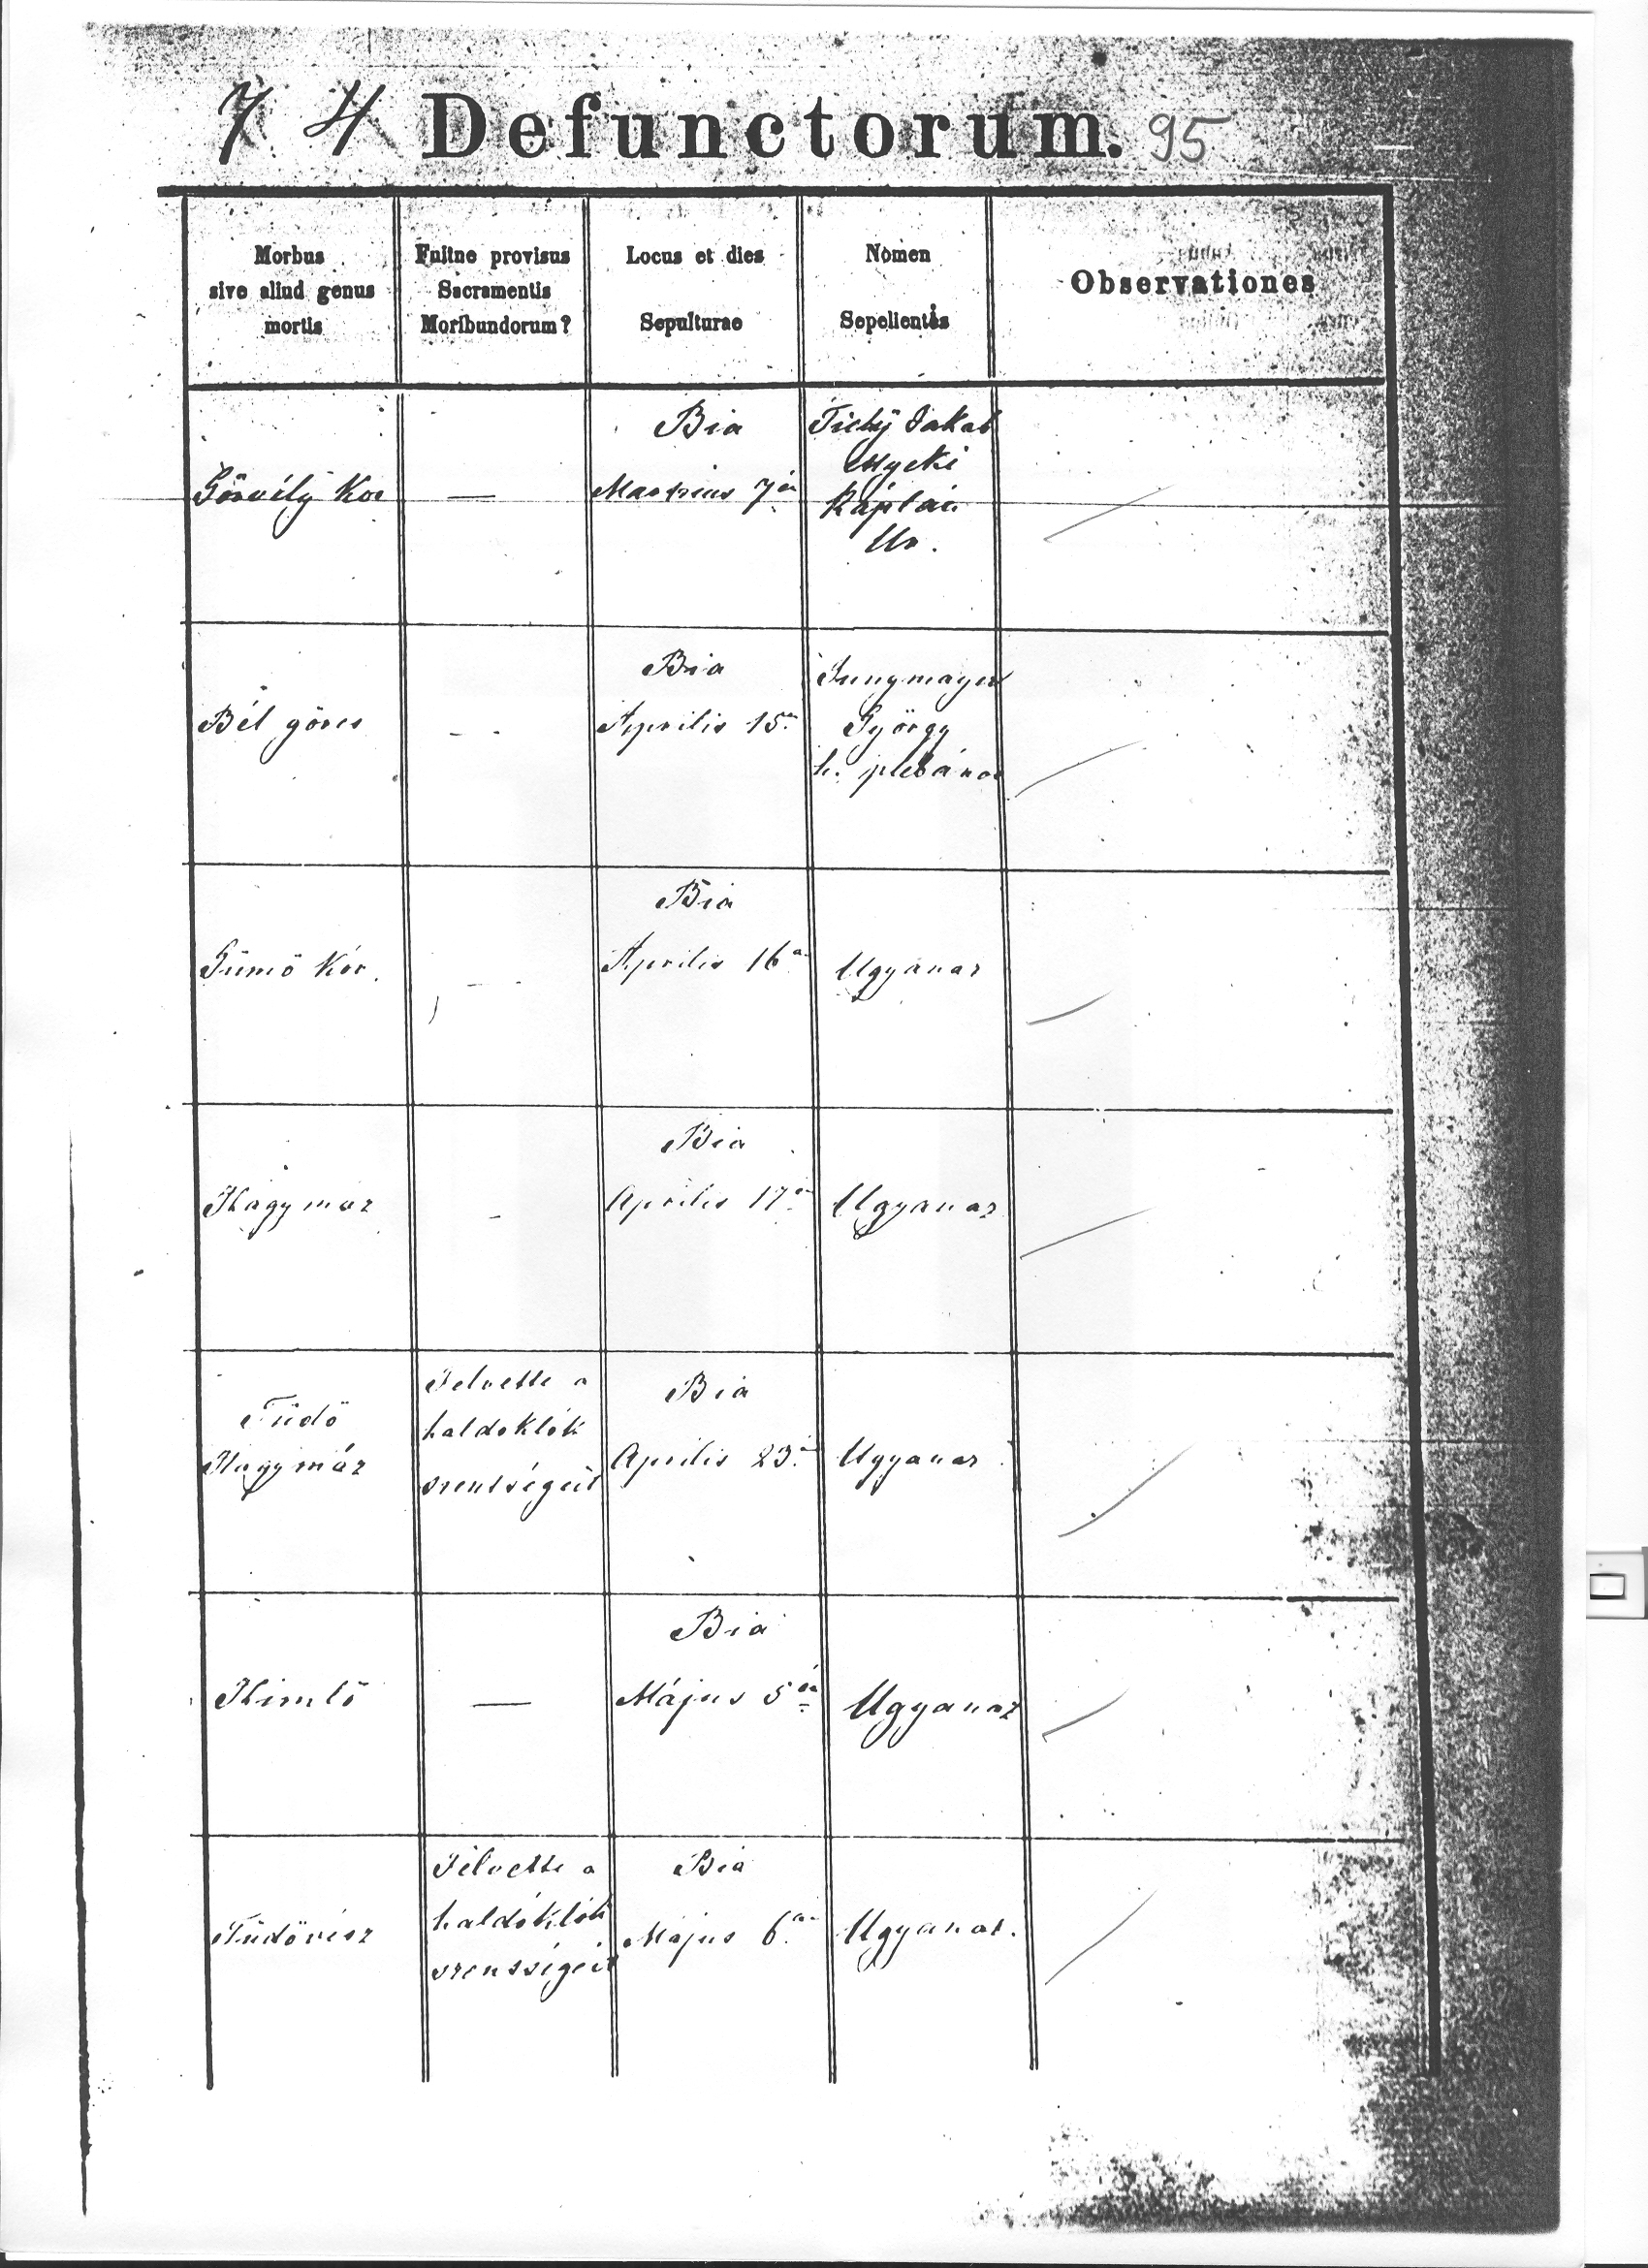 7 4 Defunctorum. 95
Morbus
sive aliud genus
mortis
Fuitne provisus
Sacramentis
Moribundorum?
Locus et dies
Sepulturae
Nomen
Sepelientis
Observationes
Görvély Kor
—
Bia
Martius 7én
Tichÿ Jakab
Etyeki
Káplán
Ur.
Bél görcs
—
Bia
Április 15én
Jungmayer
György
h. plébános
Gümő Kór.
—
Bia
Április 16án
Ugyanaz
Hagymáz
-
Bia
Április 17én
Ugyanaz
Tüdő
Hagymáz
Felvette a
haldoklók
szentségeit
Bia
Április 23án
Ugyanaz
Himlő
—
Bia
Május 5én
Ugyanaz
Tüdővész
Felvette a
haldoklók
szentségeit
Bia
Május 6án
Ugyanaz.